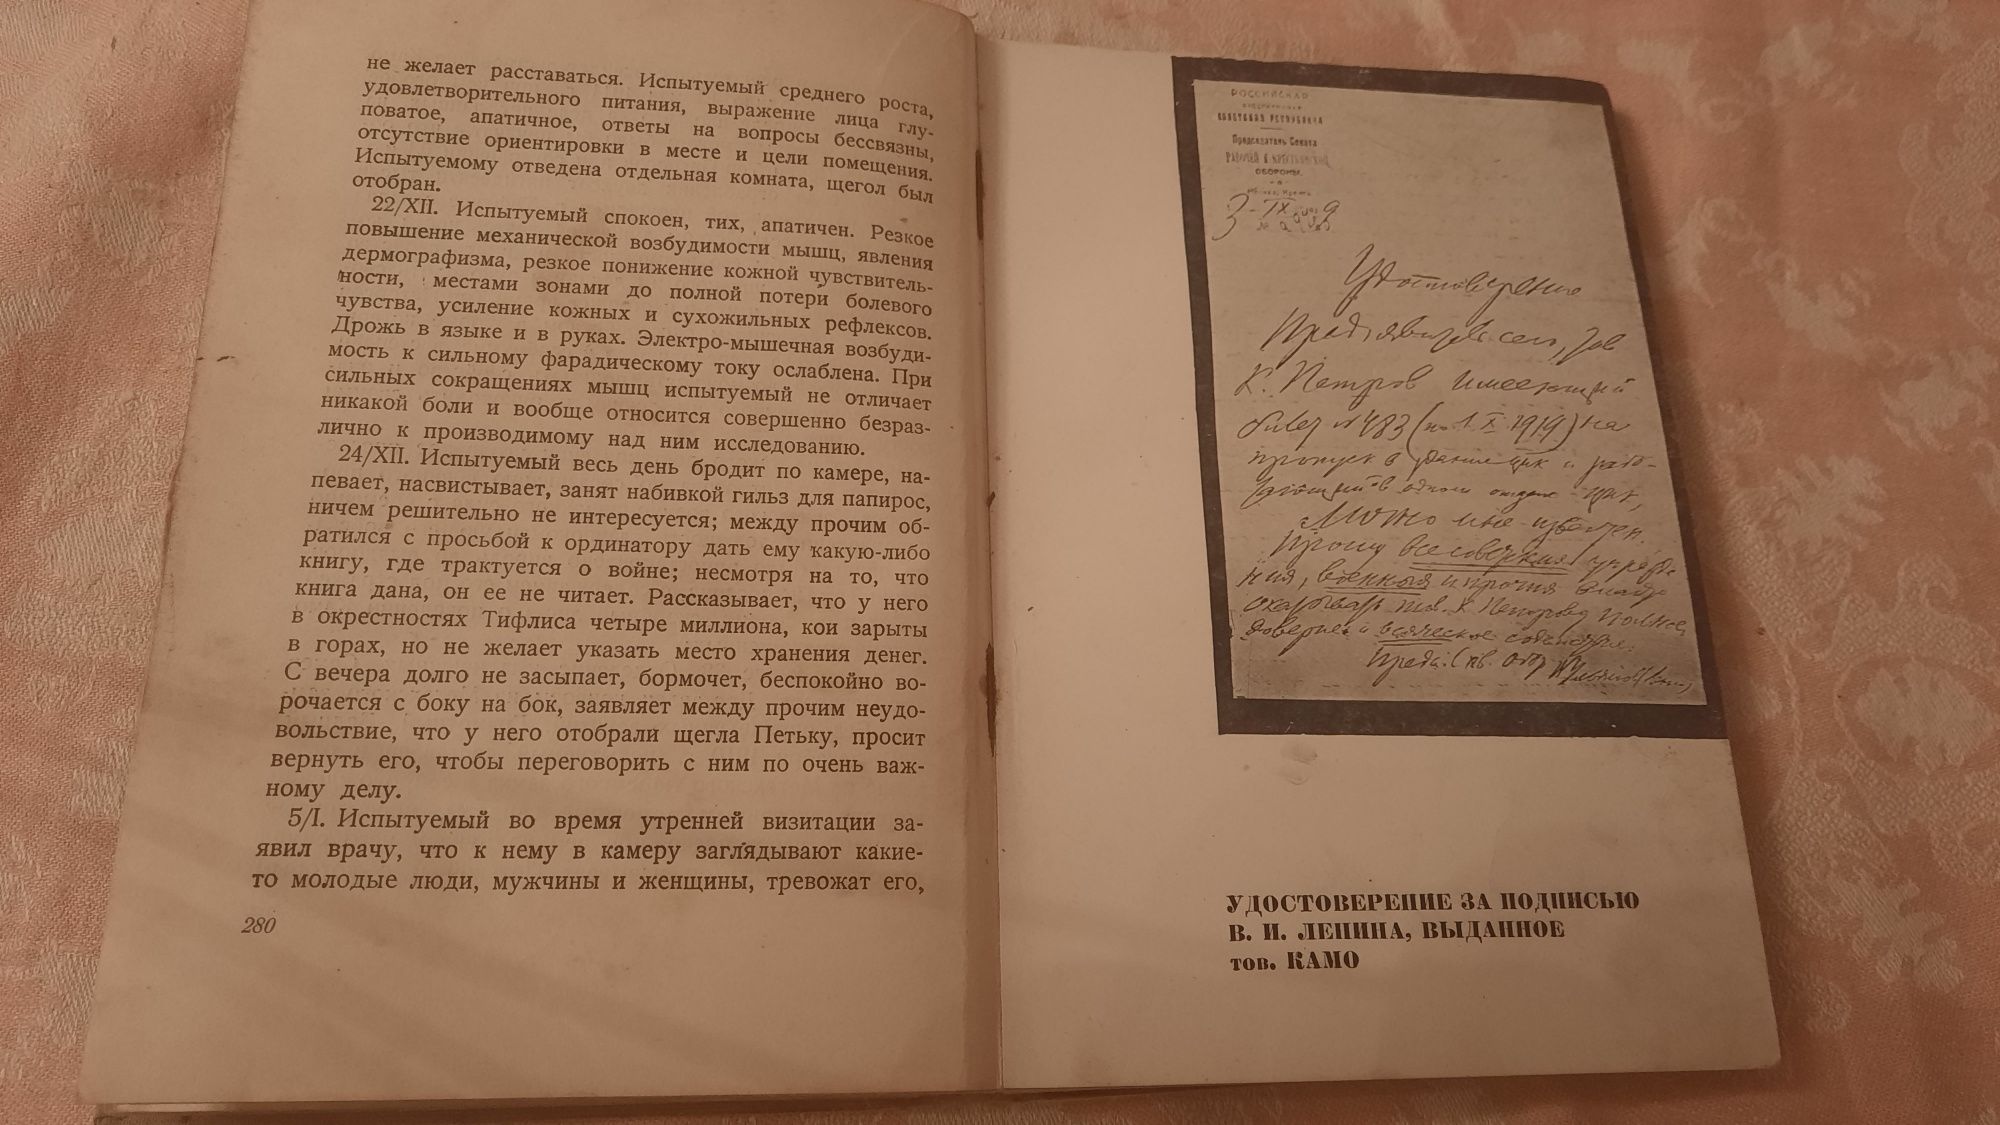 не желает расставаться. Испытуемый среднего роста,
удовлетворительного питания, выражение лица глу-
поватое, апатичное, ответы на вопросы бессвязны,
отсутствие ориентировки в месте и цели помещения.
Испытуемому отведена отдельная комната, щегол был
отобран.
22/XII. Испытуемый спокоен, тих, апатичен. Резкое
повышение механической возбудимости мышц, явления
дермографизма, резкое понижение кожной чувствитель-
ности, местами зонами до полной потери болевого
чувства, усиление кожных и сухожильных рефлексов.
Дрожь в языке и в руках. Электро-мышечная возбуди-
мость к сильному фарадическому току ослаблена. При
сильных сокращениях мышц испытуемый не отличает
никакой боли и вообще относится совершенно безраз-
лично к производимому над ним исследованию.
24/XII. Испытуемый весь день бродит по камере, на-
певает, насвистывает, занят набивкой гильз для папирос,
ничем решительно не интересуется; между прочим об-
ратился с просьбой к ординатору дать ему какую-либо
книгу, где трактуется о войне; несмотря на то, что
книга дана, он ее не читает. Рассказывает, что у него
в окрестностях Тифлиса четыре миллиона, кои зарыты
в горах, но не желает указать место хранения денег.
С вечера долго не засыпает, бормочет, беспокойно во-
рочается с боку на бок, заявляет между прочим неудо-
вольствие, что у него отобрали щегла Петьку, просит
вернуть его, чтобы переговорить с ним по очень важ-
ному делу.
5/I. Испытуемый во время утренней визитации за-
явил врачу, что к нему в камеру заглядывают какие-
то молодые люди, мужчины и женщины, тревожат его,
280
РОССИЙСКАЯ
СОВЕТСКАЯ РЕСПУБЛИКА
Председатель Совета
РАБОЧЕЙ И КРЕСТЬЯНСКОЙ
ОБОРОНЫ.
Удостоверение
Предъявитель сего, тов
К. Петров имеющий
билет № 483 (по 1. X 1919) на
пропуск в здание цик и рабо-
Лично мне известен.
Прошу все советские учрежде
ния, военные и прочия власти
оказывать тов. К Петрову полное
доверие и всяческое содействие.
Предс. Сов. Обор
УДОСТОВЕРЕНИЕ ЗА ПОДПИСЬЮ
В. И. ЛЕНИНА, ВЫДАННОЕ
тов. КАМО